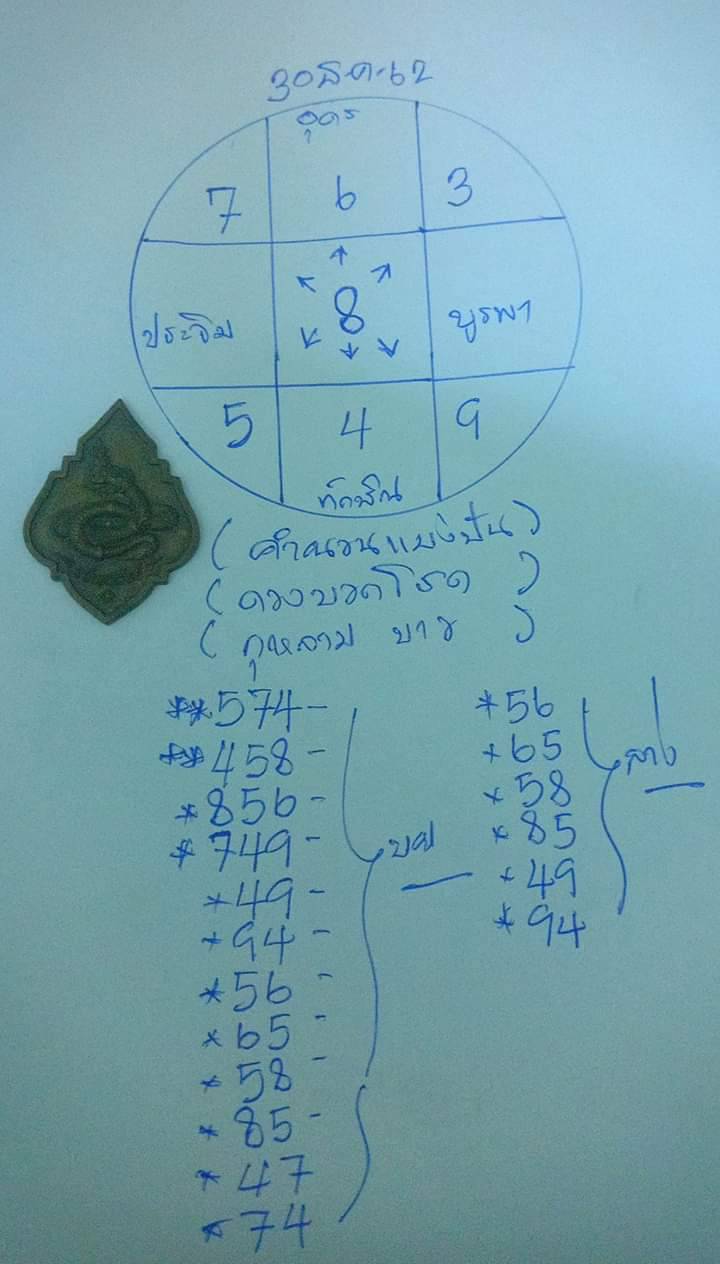 30ธ.ค.62
อุดร
7 6 3
ประจิม 8 บูรพา
5 4 9
ทักษิณ
(คำนวนแบ่งปัน)
(ดวงบอดโรด)
(กุหลาบ ขาว)
**574-
**458-
*856-
*749-
*49-
*94-
*56-
*65-
*58-
*85-
*47
*74
บน
*56
*65
*58
*85
*49
*94
ล่าง